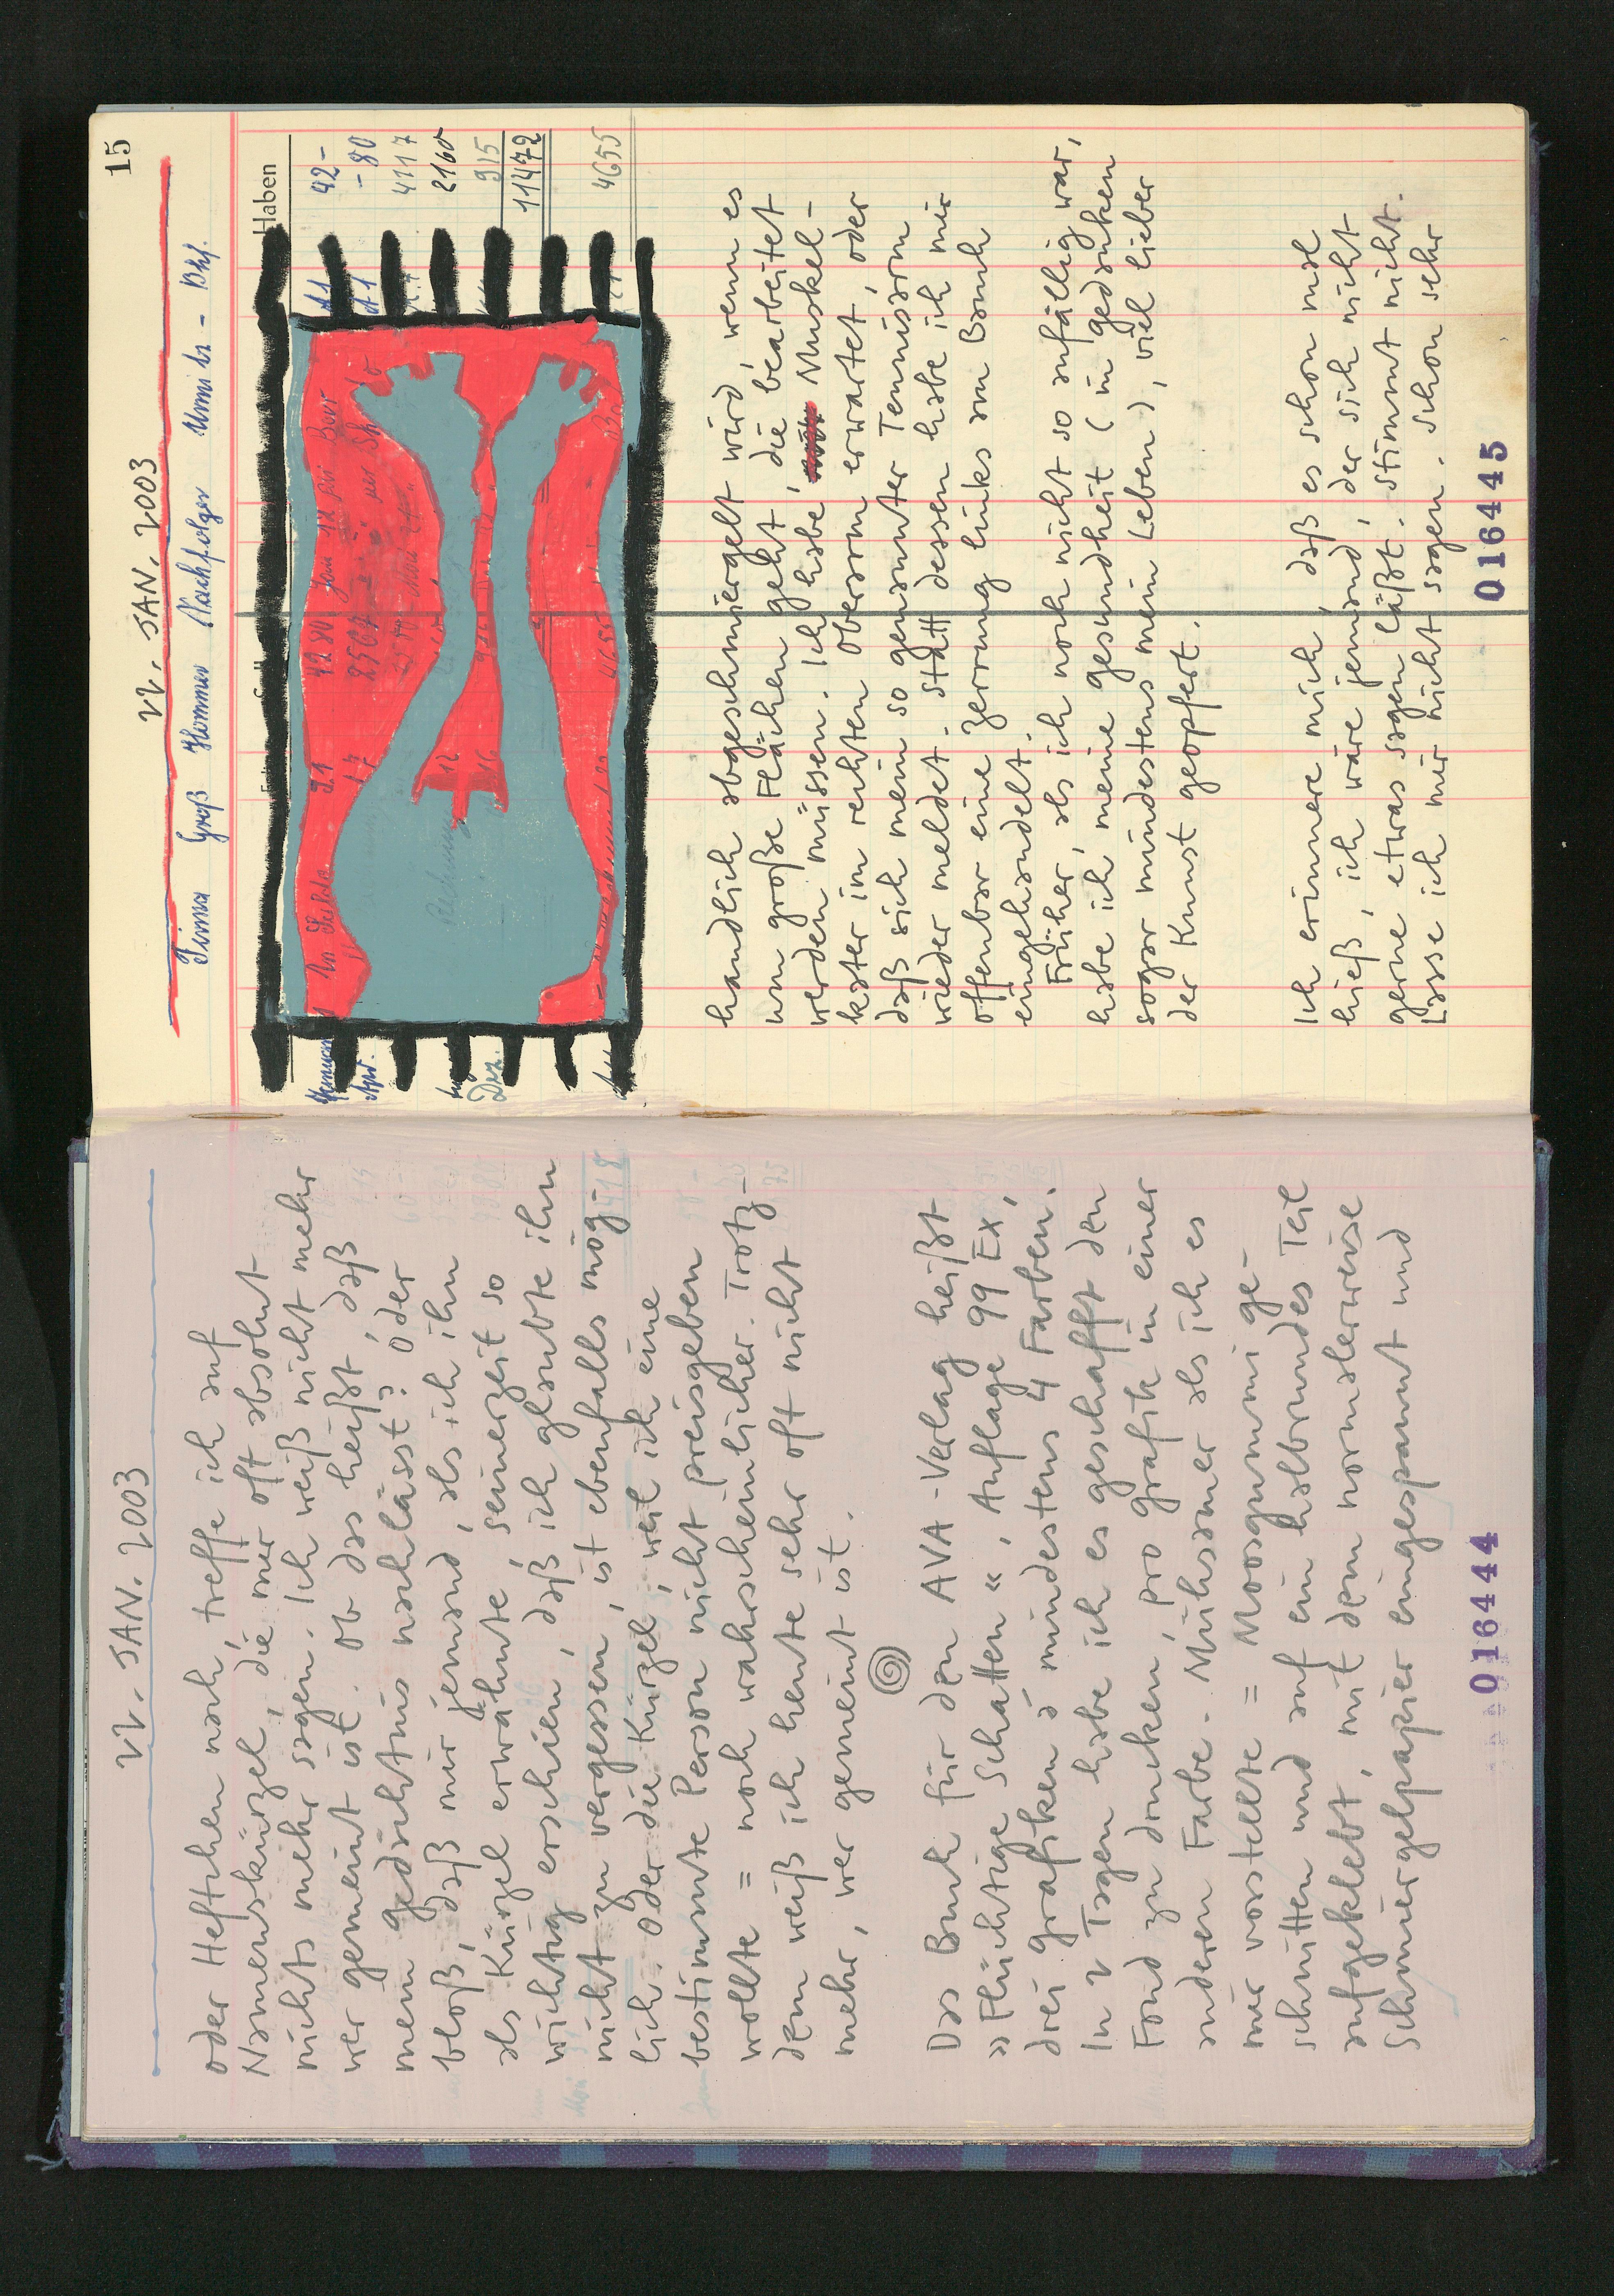 22. JAN. 2003
oder Heftchen nach, treffe ich auf
Namenskürzel, die mir oft absolut
nichts mehr sagen. Ich weiß nicht mehr
wer gemeint ist. Ob das heißt, daß
mein Gedächtnis nachlässt? Oder
bloß, daß mir jemand, als ich ihn
als Kürzel erwähnte, seinerzeit so
wichtig erschien, daß ich glaubte ihn
nicht zu vergessen, ist ebenfalls mög-
lich. Oder die Kürzel, weil ich eine
bestimmte Person nicht preisgeben
wollte = noch wahrscheinlicher. Trotz-
dem weiß ich heute sehr oft nicht
mehr, wer gemeint ist.
Das Buch für den AVA-Verlag heißt
»Flüchtige Schatten«, Auflage 99 Ex,
drei Grafiken à mindestens 4 Farben.
In 2 Tagen habe ich es geschafft den
Fond zu drucken, pro Grafik in einer
anderen Farbe. Mühsamer als ich es
mir vorstellte = Moosgummi ge-
schnitten und auf ein halbrundes Teil
aufgeklebt, mit dem normalerweise
Schmirgelpapier eingespannt und
016444
15
22. JAN. 2003
Firma Groß Hommer Nachfolger
Haben
42-
-80
4117
2160
915
11472
4655
handlich abgeschmiergelt wird, wenn es
um große Flächen geht, die bearbeitet
werden müssen. Ich habe Muskel-
kater im rechten Oberarm erwartet, oder
daß sich mein so genannter Tennisarm
wieder meldet. Statt dessen habe ich mir
offenbar eine Zerrung links am Bauch
eingehandelt.
Früher, als ich noch nicht so anfällig war,
habe ich meine Gesundheit (in Gedanken
sogar mindestens mein Leben), viel lieber
der Kunst geopfert.
Ich erinnere mich, daß es schon mal
hieß, ich wäre jemand, der sich nicht
gerne etwas sagen läßt. Stimmt nicht.
Lasse ich mir nicht sagen. Schon sehr
016445